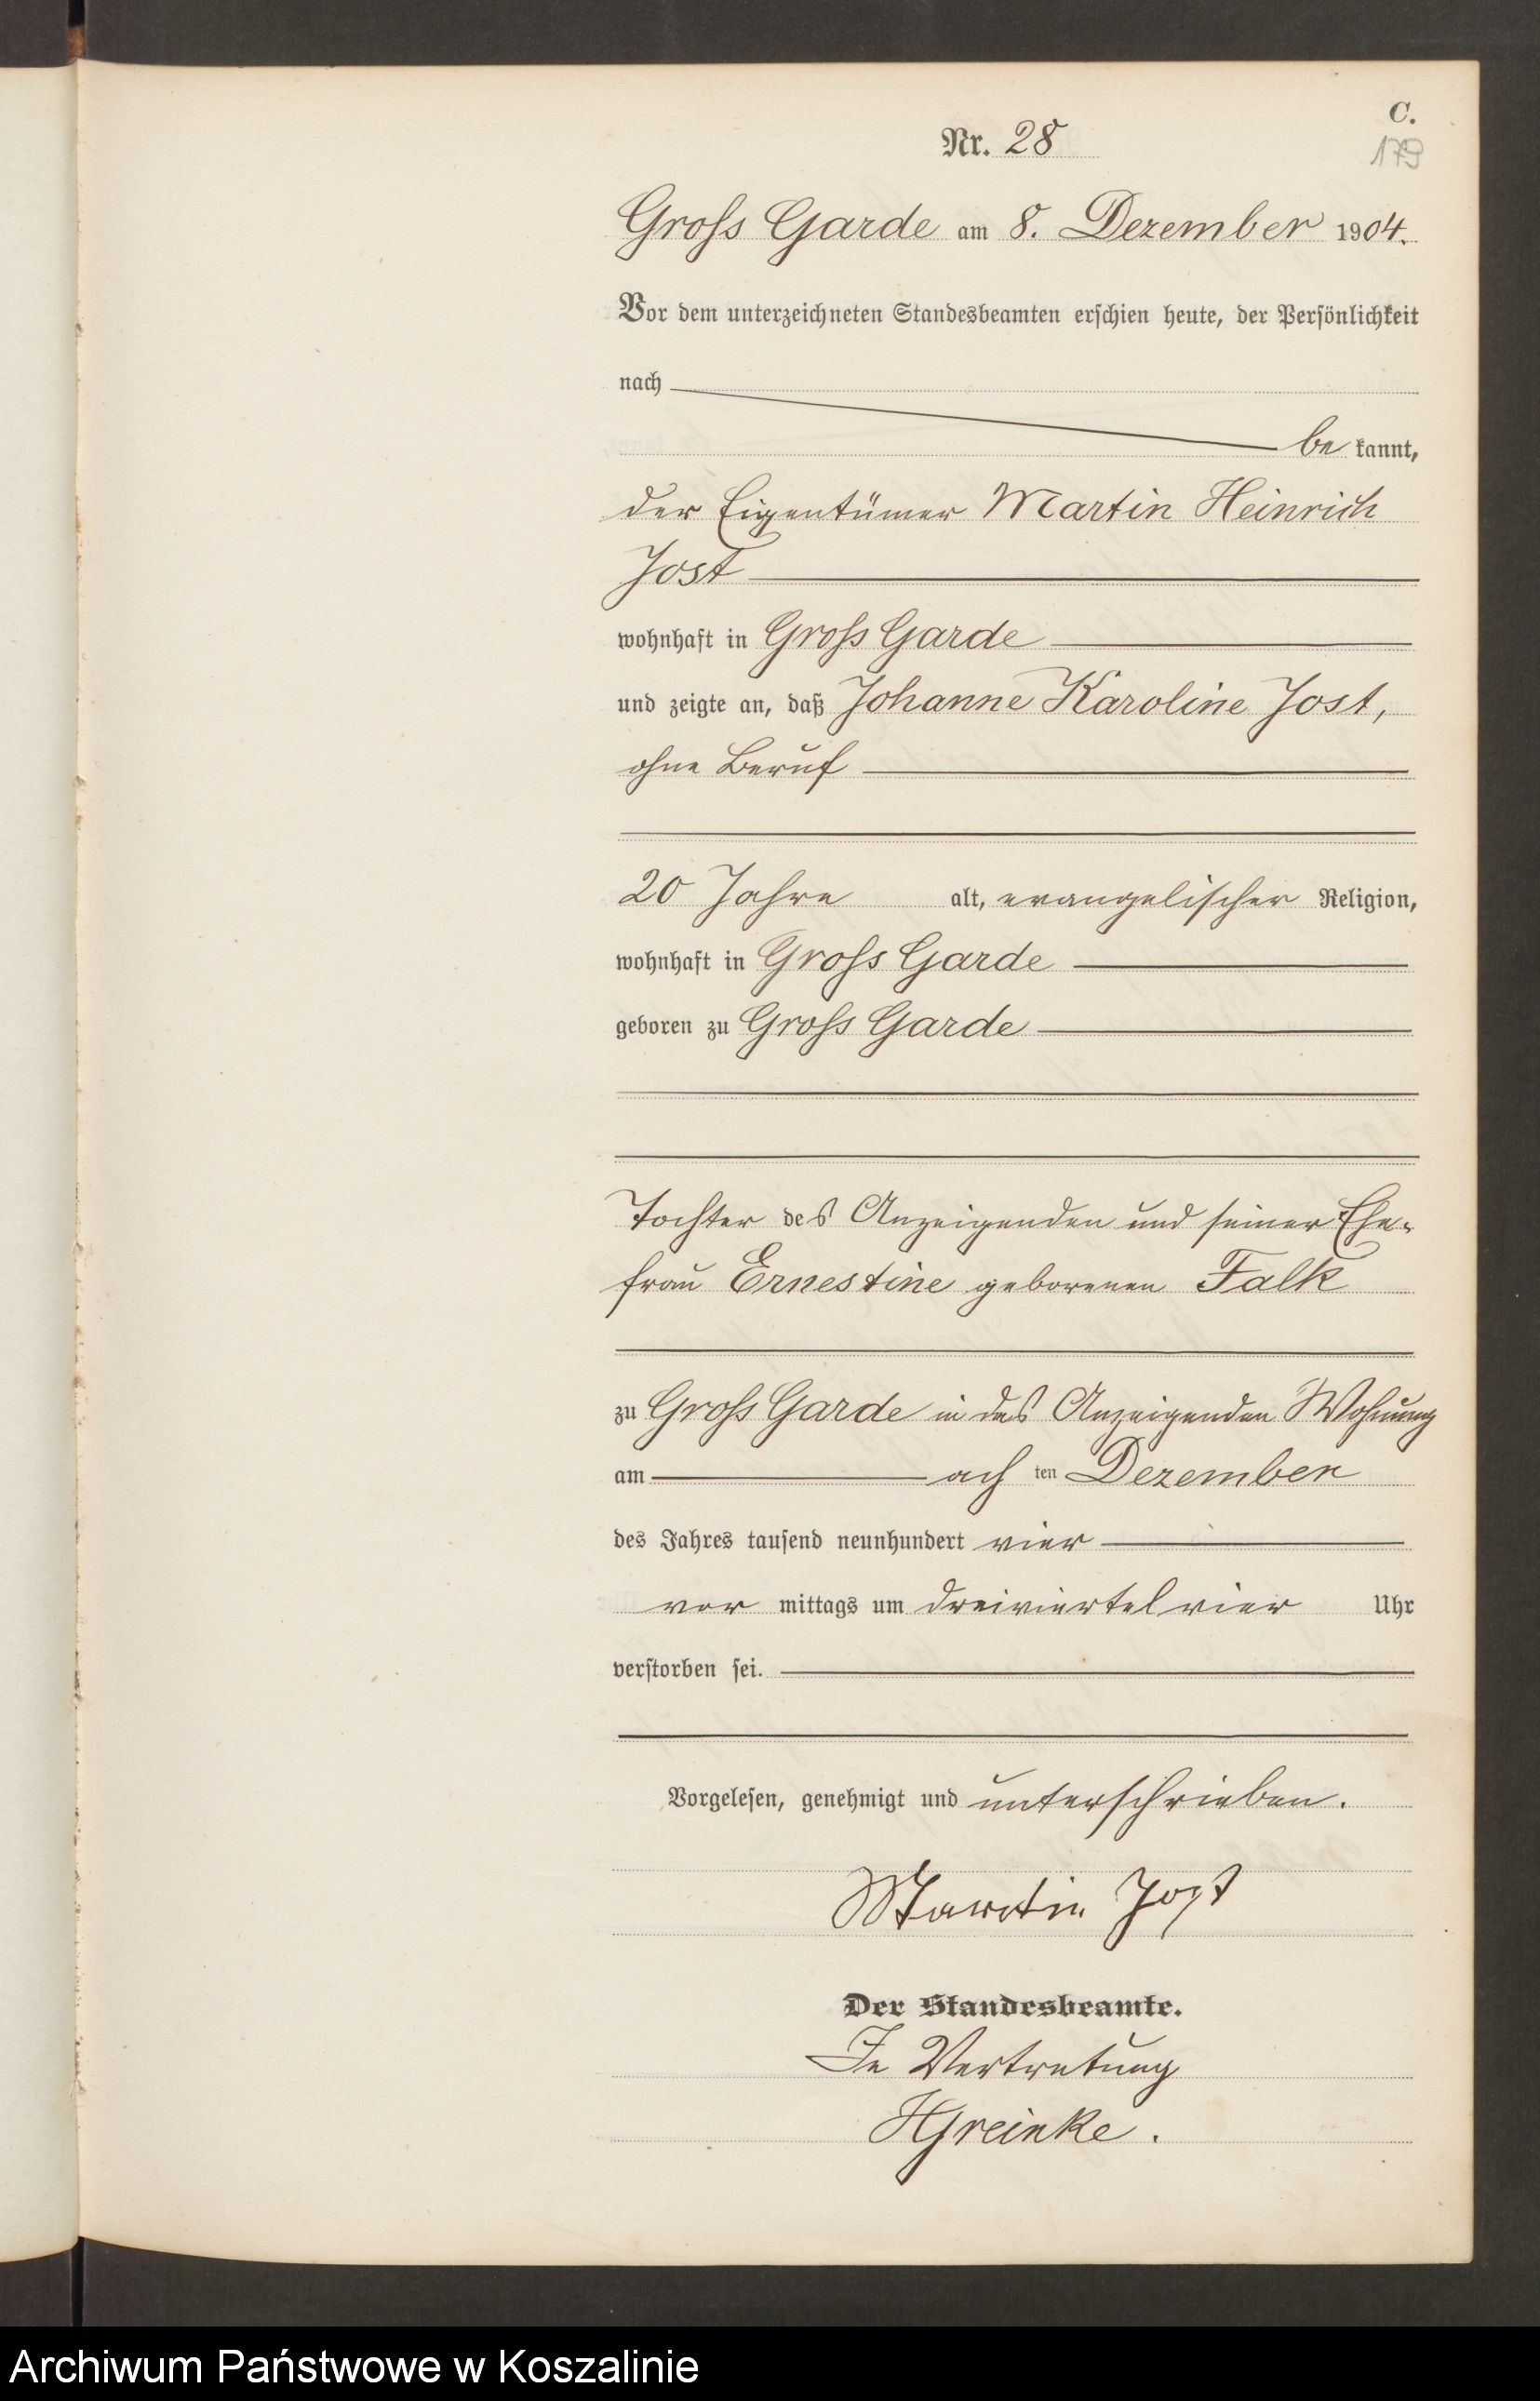 C.
Nr. 28
179
Gross Garde am 8. Dezember 1904.
Vor dem unterzeichneten Standesbeamten erschien heute, der Persönlichkeit
nach
be kannt,
der Eigentümer Martin Heinrich
Jost
wohnhaft in Gross Garde
und zeigte an, daß Johanne Karoline Jost,
ohne Beruf
20 Jahre alt, evangelischer Religion,
wohnhaft in Gross Garde
geboren zu Gross Garde
Tochter des Anzeigenden und seiner Ehe-
frau Ernestine geborenen Falk
zu Gross Garde in des Anzeigenden Wohnung
am ach ten Dezember
des Jahres tausend neunhundert vier
vor mittags um dreiviertel vier Uhr
verstorben sei.
Vorgelesen, genehmigt und unterschrieben.
Martin Jost
Der Standesbeamte.
In Vertretung
HGreinke.
Archiwum Państwowe w Koszalinie